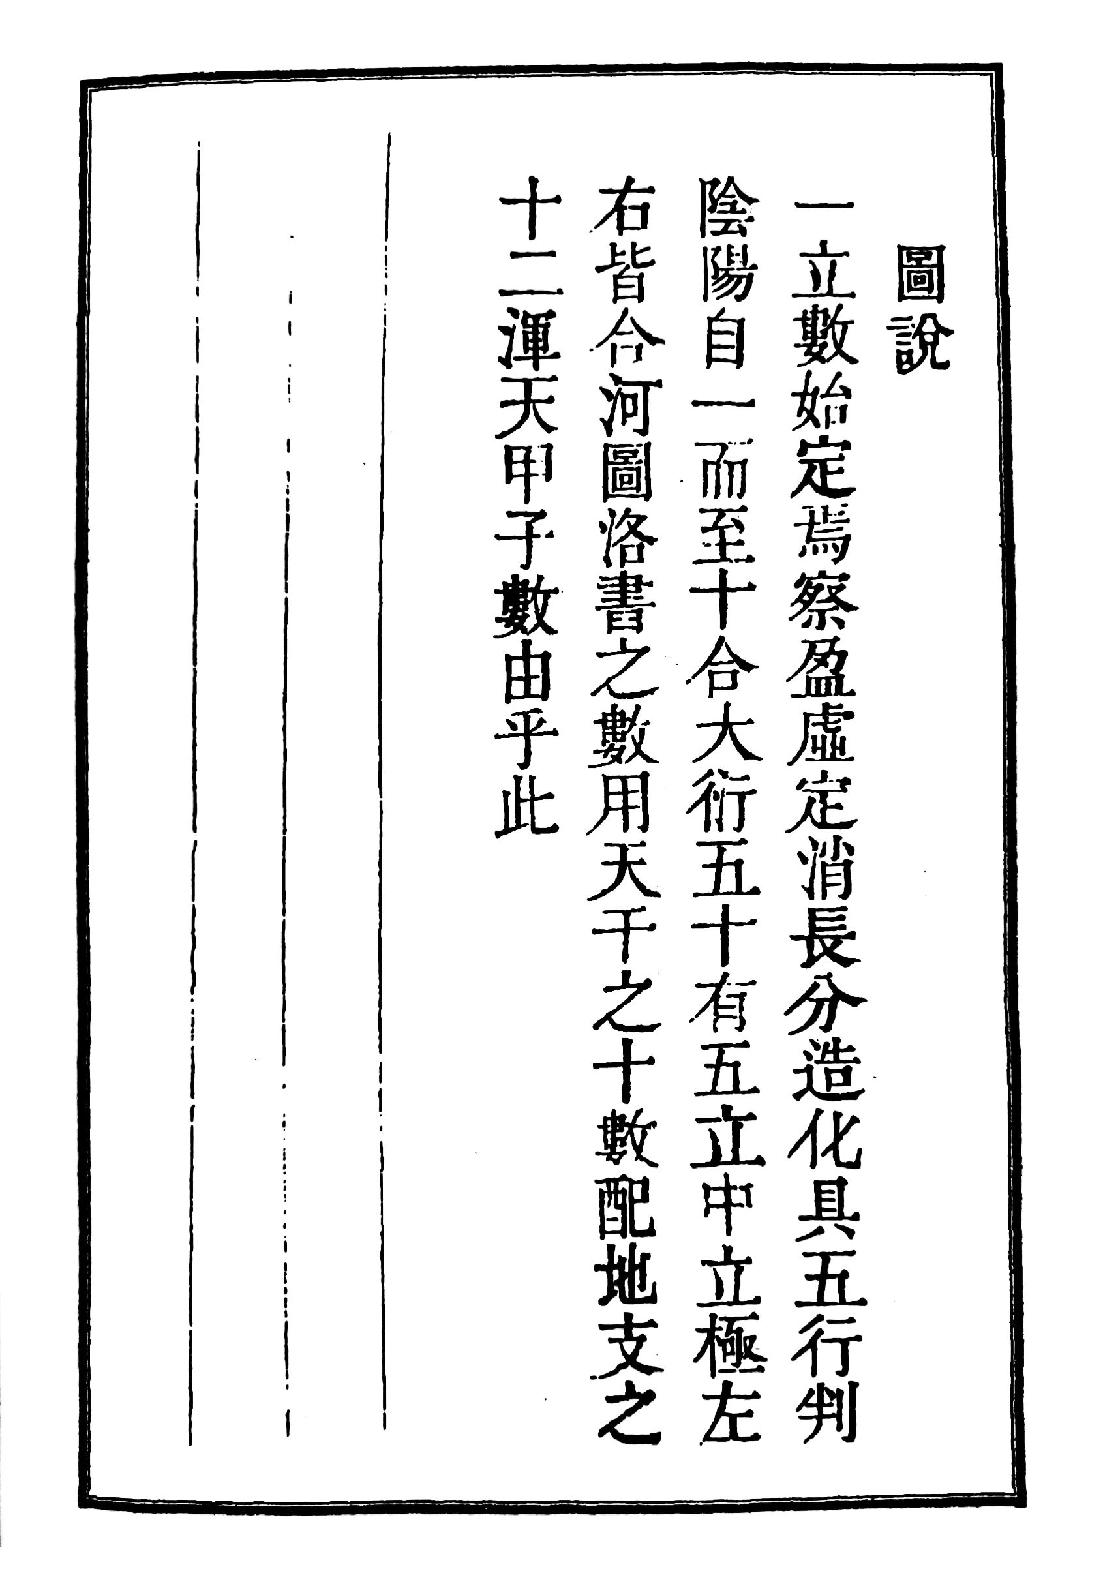 圖說
一立數始定焉察盈虛定消長分造化具五行判
陰陽自一而至十合大衍五十有五立中立極左
右皆合河圖洛書之數用天干之十數配地支之
十二渾天甲子數由乎此